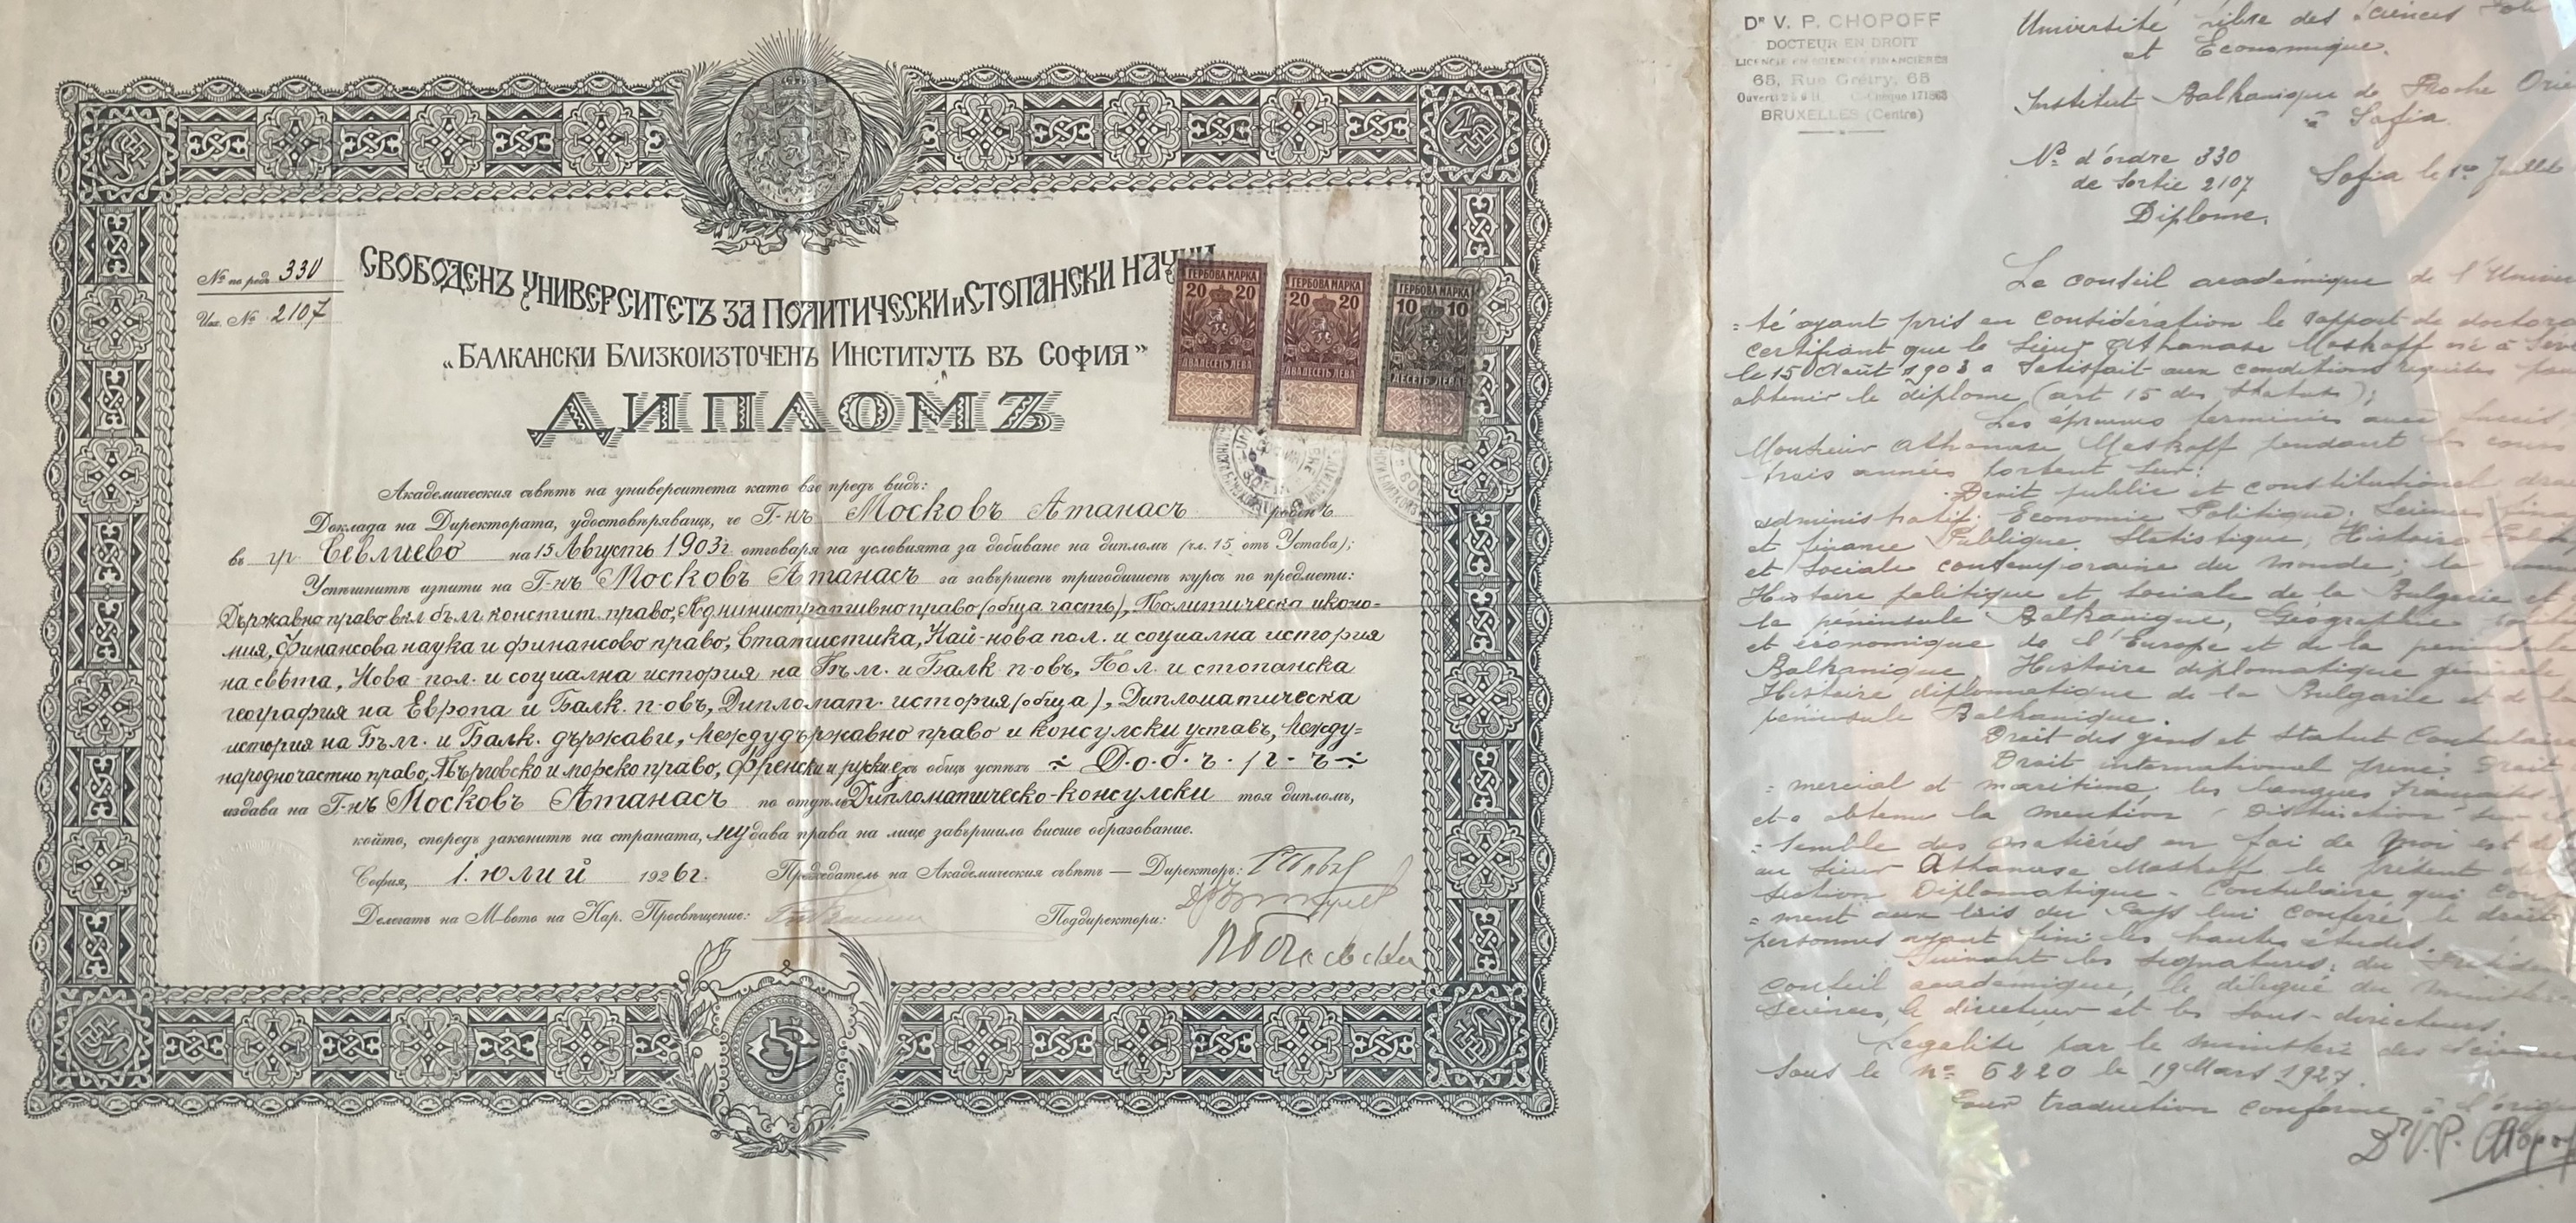 № по редъ 330
Изх. № 2107
СВОБОДЕНЪ УНИВЕРСИТЕТЪ ЗА ПОЛИТИЧЕСКИ и СТОПАНСКИ НАУКИ
„БАЛКАНСКИ БЛИЗКОИЗТОЧЕНЪ ИНСТИТУТЪ ВЪ СОФИЯ”
ДИПЛОМЪ
ГЕРБОВА МАРКА
20 20
ДВАДЕСЕТЬ ЛЕВА
ГЕРБОВА МАРКА
20 20
ДВАДЕСЕТЬ ЛЕВА
ГЕРБОВА МАРКА
10 10
ДЕСЕТЬ ЛЕВА
Академическия съветъ на университета като взе предъ видъ:
Доклада на Директората, удостовѣряващъ, че Г-нъ Московъ Атанасъ роденъ
въ гр. Севлиево на 15 Августъ 1903 г. отговаря на условията за добиване на дипломъ (чл. 15 отъ Устава);
Успѣшнитѣ изпити на Г-нъ Московъ Атанасъ за завършенъ тригодишенъ курсъ по предмети:
Държавно право вкл бълг констит. право, Административно право (обща часть), Политическа иконо-
мия, Финансова наука и финансово право, Статистика, Най-нова пол. и социална история
на свѣта, Нова пол. и социална история на Бълг. и Балк п-овъ, Пол. и стопанска
география на Европа и Балк. п-овъ, Дипломат. история (обща), Дипломатическа
история на Бълг. и Балк. държави, Междудържавно право и консулски уставъ, Между-
народно частно право, Търговско и морско право, Френски и руски ез. съ общъ успѣхъ ÷ Д·о·б·ъ·р·ъ ÷
издава на Г-нъ Московъ Атанасъ по отдѣлъ Дипломатическо-консулски тоя дипломъ,
който, споредъ законитѣ на страната, му дава права на лице завършило висше образование.
София, 1. юлий 1926 г.
Председатель на Академическия съветъ — Директоръ:
Делегатъ на М-вото на Нар. Просвѣщение:
Поддиректори:
Dr V. P. CHOPOFF
DOCTEUR EN DROIT
LICENCIÉ EN SCIENCES FINANCIÈRES
68, Rue Grétry, 68
BRUXELLES (Centre)
Université libre des Sciences
et Economique.
Institut Balkanique de Proche
à Sofia.
No d'ordre 330
de Sortie 2107
Sofia le 1er Juillet
Diplome.
Le conseil académique de l'Univer
= té ayant pris en considération le rapport de
certifiant que le Sieur Athanase Moskoff né à
le 15 Août 1903 a satisfait aux conditions requises
obtenir le diplome (art 15 des Statuts);
Les épreuves terminées avec
Monsieur Athanase Moskoff pendant les cours
trois années portent sur:
Droit public et constitutionel
administratif; Economie Politique; Science
et finance Publique. Statistique; Histoire
et Sociale contemporaine du monde; la
Histoire politique et sociale de la Bulgarie et
la péninsule Balkanique, Géographie
et économique de l'Europe et de la
Balkanique. Histoire diplomatique générale
Histoire diplomatique de la Bulgarie et de la
péninsule Balkanique.
Droit des gens et Statut Consulaire
Droit international privé. Droit
= mercial et maritime, les langues Françaises
et a obtenu la mention "Distinction" sur
= semble des matières en foi de quoi est
au Sieur Athanase Moskoff le présent
section Diplomatique - Consulaire qui
= ment aux lois du Pays lui confère le droit
personnes ayant fini les hautes études.
Suivant les signatures: du
conseil académique, le délégué du
Sciences, le directeur et les sous-directeurs.
Légalité par le ministère des
sous le No 6220 le 19 Mars 1927.
Pour traduction conforme à
Dr V. P. Chopoff